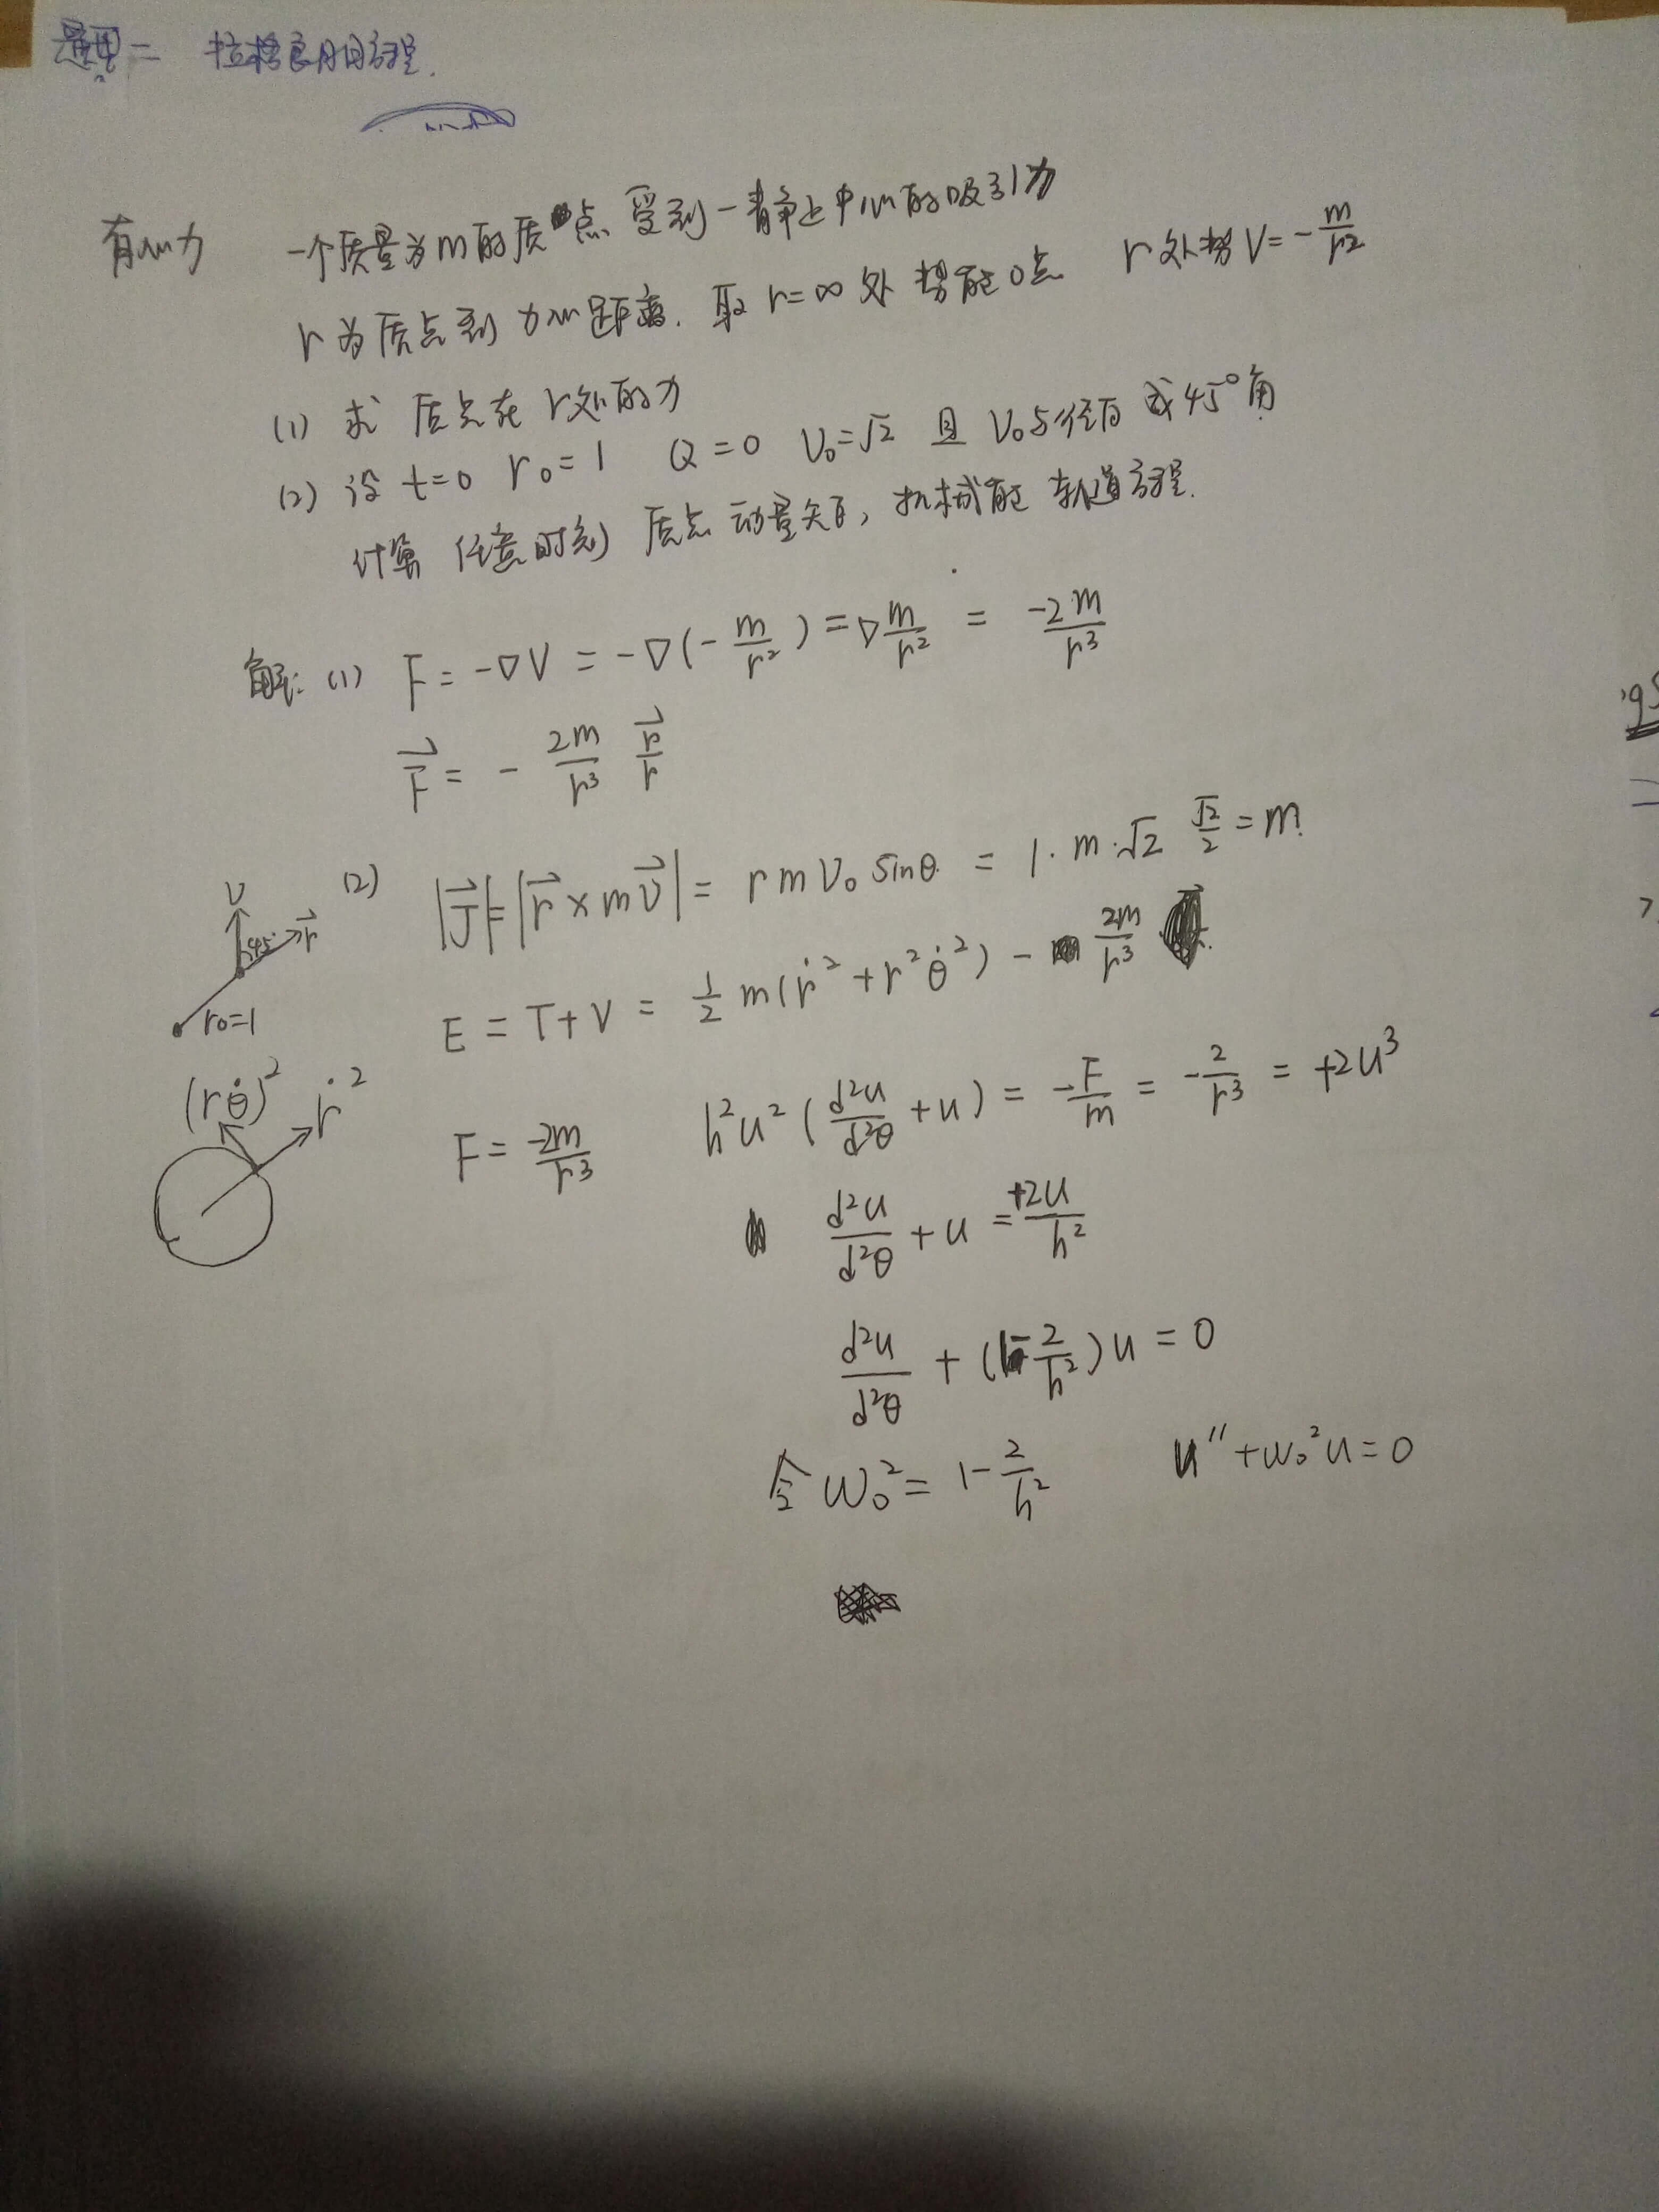 题型二 拉格朗日方程.
有心力 一个质量为m的质点受到一静止中心的吸引力
r为质点到力心距离. 取r=∞处势能0点 r处势V=-m/r²
(1) 求质点在r处的力
(2) 设t=0 r₀=1 Q=0 V₀=√2 且V₀与径向成45°角
计算任意时刻质点动量矩, 机械能 轨道方程.
解: (1) F=-▽V=-▽(-m/r²)=▽m/r²=-2m/r³
F⃗=-2m/r³ r⃗/r
(2) |J⃗|=|r⃗×mv⃗|=rmV₀sinθ=1·m·√2 √2/2=m.
V 45° r⃗
r₀=1
E=T+V=½m(ṙ²+r²θ̇²)-2m/r³
(rθ̇)² ṙ²
F=-2m/r³ h²u²(d²u/d²θ+u)=-F/m=-2/r³=+2u³
d²u/d²θ+u=+2u/h²
d²u/d²θ+(1-2/h²)u=0
令ω₀²=1-2/h² u''+ω₀²u=0